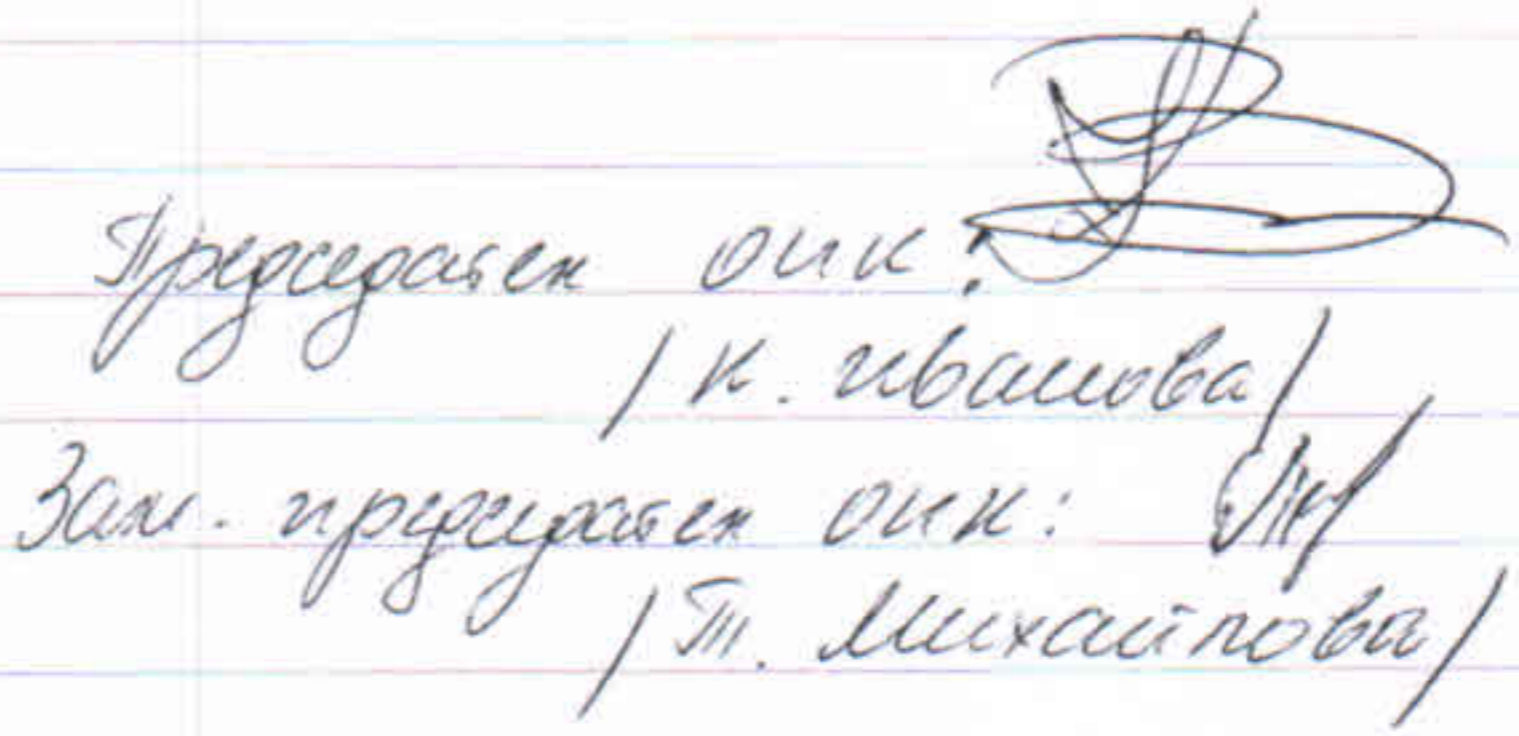 Председател ОИК:
/К. Иванова/
Зам. председател ОИК:
/Т. Михайлова/